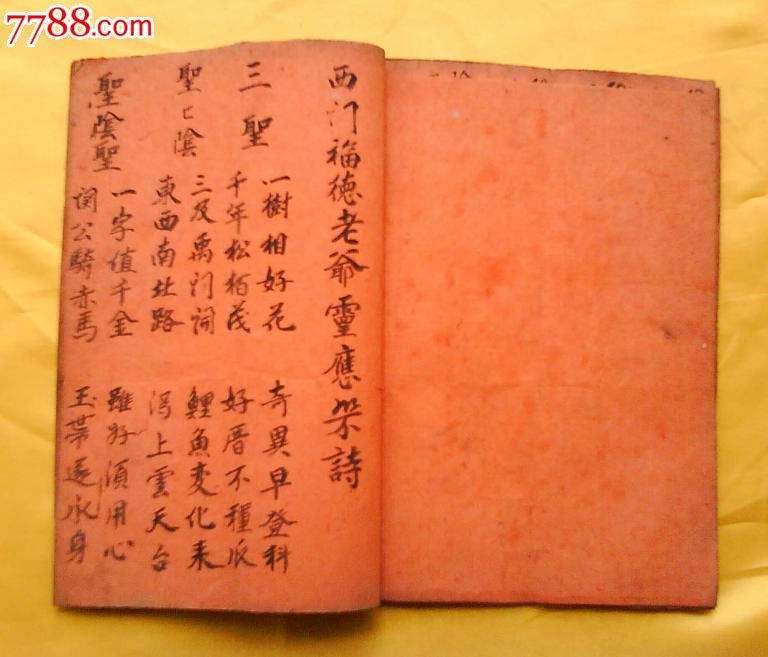 7788.com
西门福德老爺靈應杯詩
三聖
一樹相好花 奇異早登科
千年松栢茂 好厝不種瓜
聖匕陰
三及禹门詞 鯉魚變化来
東西南北路 上雲天台
聖陰聖
一字值千金 雖好須用心
関公騎赤馬 玉帯返永身